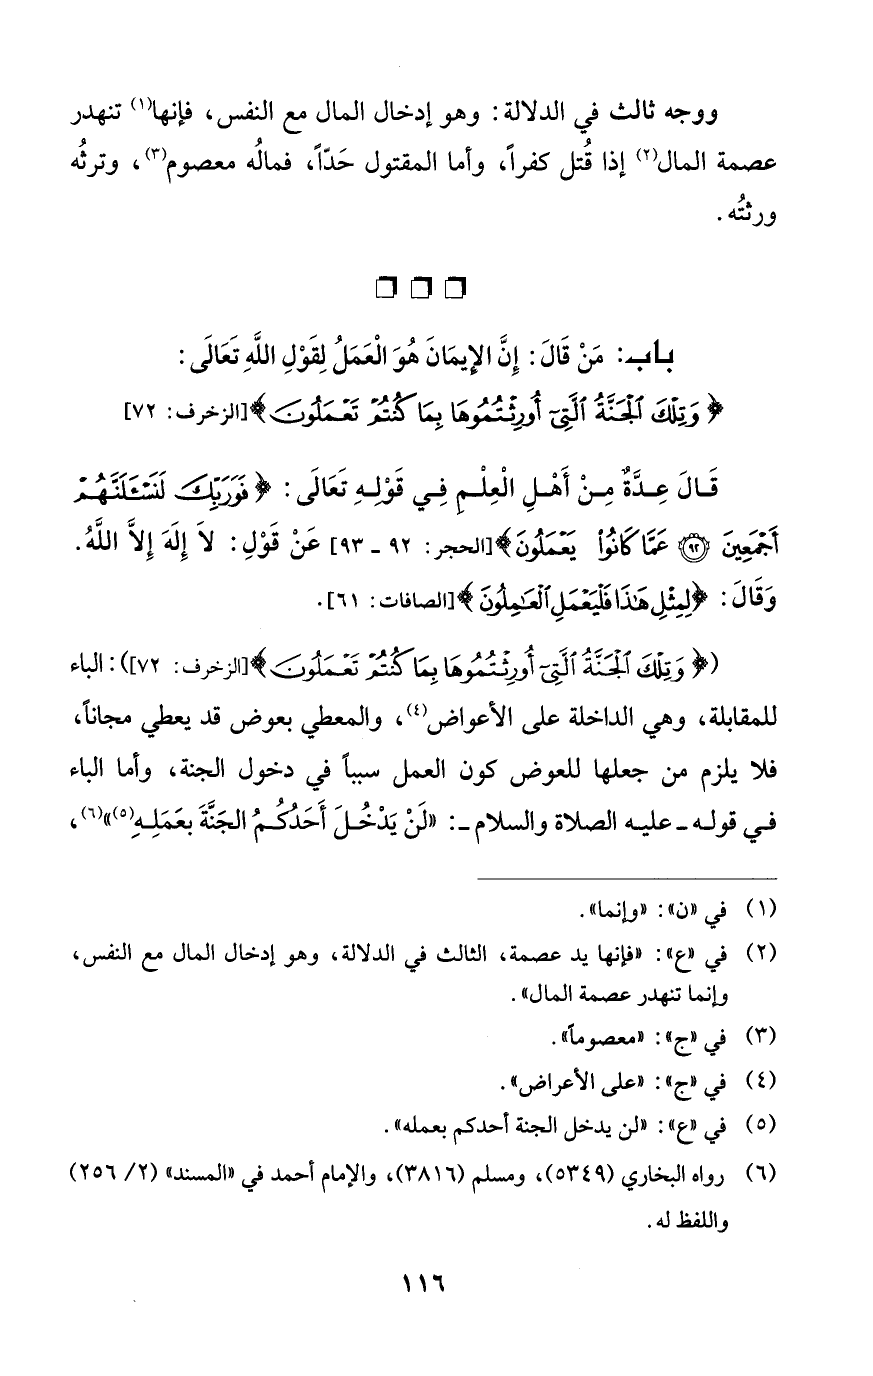 ووجه ثالث في الدلالة: وهو إدخال المال مع النفس، فإنها(١) تنهدر
عصمة المال(٢) إذا قُتل كفراً، وأما المقتول حَدّاً، فمالُه معصوم(٣)، وترثُه
ورثتُه.
باب: مَنْ قَالَ: إِنَّ الإِيمَانَ هُوَ الْعَمَلُ لِقَوْلِ اللَّهِ تَعَالَى:
﴿وَتِلْكَ ٱلْجَنَّةُ ٱلَّتِىٓ أُورِثْتُمُوهَا بِمَا كُنتُمْ تَعْمَلُونَ﴾[الزخرف: ٧٢]
قَالَ عِدَّةٌ مِنْ أَهْلِ الْعِلْمِ فِي قَوْلِهِ تَعَالَى: ﴿فَوَرَبِّكَ لَنَسْـَٔلَنَّهُمْ
أَجْمَعِينَ ۝٩٢ عَمَّا كَانُوا۟ يَعْمَلُونَ﴾[الحجر: ٩٢ ـ ٩٣] عَنْ قَوْلِ: لاَ إِلَهَ إِلاَّ اللَّهُ.
وَقَالَ: ﴿لِمِثْلِ هَٰذَا فَلْيَعْمَلِ ٱلْعَٰمِلُونَ﴾[الصافات: ٦١].
(﴿وَتِلْكَ ٱلْجَنَّةُ ٱلَّتِىٓ أُورِثْتُمُوهَا بِمَا كُنتُمْ تَعْمَلُونَ﴾[الزخرف: ٧٢]): الباء
للمقابلة، وهي الداخلة على الأعواض(٤)، والمعطي بعوض قد يعطي مجاناً،
فلا يلزم من جعلها للعوض كون العمل سبباً في دخول الجنة، وأما الباء
في قوله ـ عليه الصلاة والسلام ـ: «لَنْ يَدْخُلَ أَحَدُكُمُ الجَنَّةَ بِعَمَلِهِ(٥)»(٦)،
(١) في «ن»: «وإنما».
(٢) في «ع»: «فإنها يد عصمة، الثالث في الدلالة، وهو إدخال المال مع النفس،
وإنما تنهدر عصمة المال».
(٣) في «ج»: «معصوماً».
(٤) في «ج»: «على الأعراض».
(٥) في «ع»: «لن يدخل الجنة أحدكم بعمله».
(٦) رواه البخاري (٥٣٤٩)، ومسلم (٣٨١٦)، والإمام أحمد في «المسند» (٢/ ٢٥٦)
واللفظ له.
١١٦